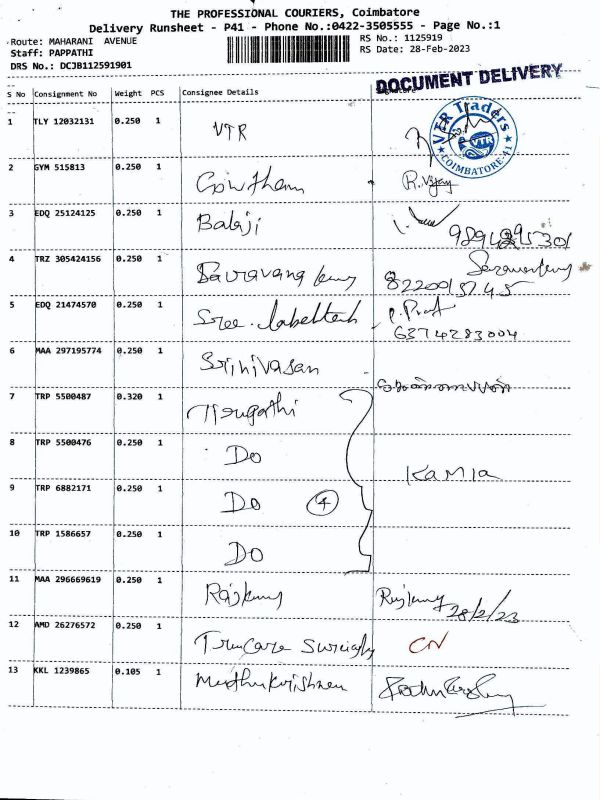 THE PROFESSIONAL COURIERS, Coimbatore
Delivery Runsheet - P41 - Phone No.:0422-3505555 - Page No.:1
Route: MAHARANI AVENUE
RS No.: 1125919
Staff: PAPPATHI
RS Date: 28-Feb-2023
DRS No.: DCJB112591901
DOCUMENT DELIVERY
S No Consignment No Weight PCS Consignee Details Signature
1 TLY 12032131 0.250 1 VTR
VTR Traders
VTR
COIMBATORE-41
2 GYM 515813 0.250 1 Gowtham R. Vijay
3 EDQ 25124125 0.250 1 Balaji
4 TRZ 305424156 0.250 1
8220015745
5 EDQ 21474570 0.250 1 Sree. labeltech
6374283004
6 MAA 297195774 0.250 1 Srinivasan
7 TRP 5500487 0.320 1 Tirupathi
8 TRP 5500476 0.250 1 Do
Kamla
9 TRP 6882171 0.250 1 Do 4
10 TRP 1586657 0.250 1 Do
11 MAA 296669619 0.250 1 Rajkumar 28/2/23
12 AMD 26276572 0.250 1 Trucare CN
13 KKL 1239865 0.105 1 Muthukrishnan